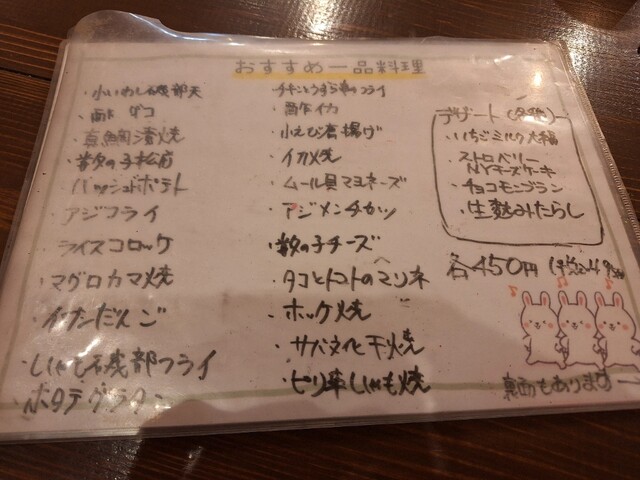 おすすめ一品料理
・小いわし磯部天
・酢ダコ
・真鯛塩焼
・数の子松前
・ハッシュポテト
・アジフライ
・ライスコロッケ
・マグロカマ焼
・イカだんご
・ししゃも磯部フライ
・ホタテグラタン
・チキンとうずら串フライ
・酢イカ
・小えび唐揚げ
・イカ焼
・ムール貝マヨネーズ
・アジメンチカツ
・数の子チーズ
・タコとトマトのマリネ
・ホッケ焼
・サバ文化干焼
・ピリ辛ししゃも焼
デザート
・いちごミルク大福
・ストロベリー
NYチーズケーキ
・チョコモンブラン
・生麩みたらし
各450円
裏面もあります